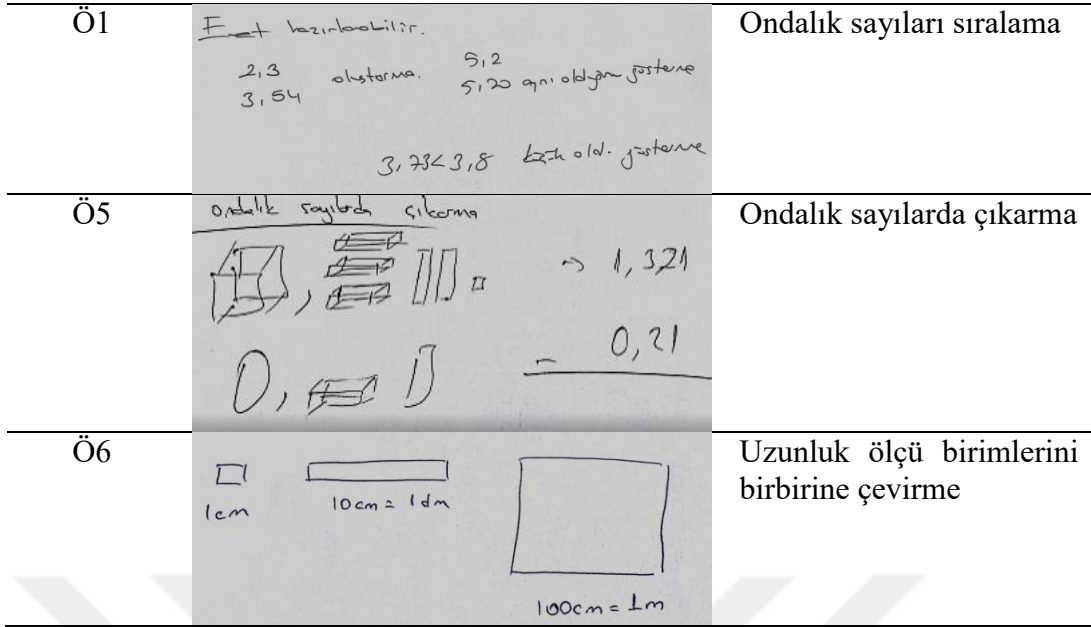 Ö1
Evet hazırlanabilir.
2,3 oluşturma.
3,54
5,2
5,20 aynı olduğunu gösterme
3,73<3,8 küçük old. gösterme
Ondalık sayıları sıralama
Ö5
Ondalık sayılarda çıkarma
, → 1,321
0, - 0,21
Ondalık sayılarda çıkarma
Ö6
1cm
10cm = 1dm
100cm = 1m
Uzunluk ölçü birimlerini
birbirine çevirme